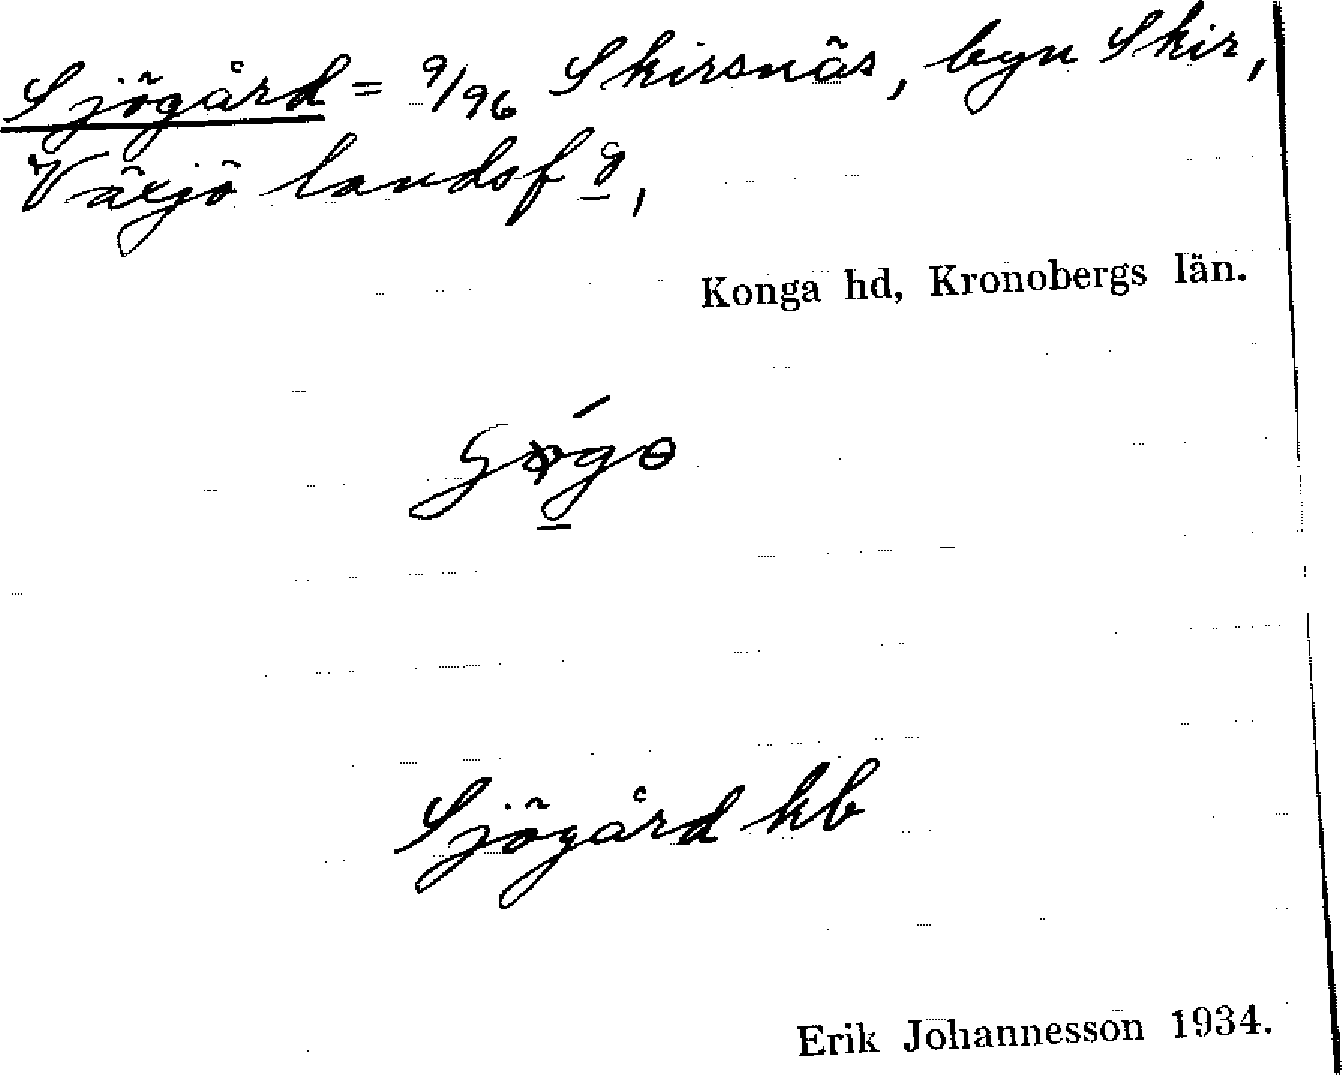 Sjögård = 9/96 Skirsnäs, byn Skir,
Växjö landsf g,
Konga hd, Kronobergs län.
Sjögård hb
Erik Johannesson 1934.